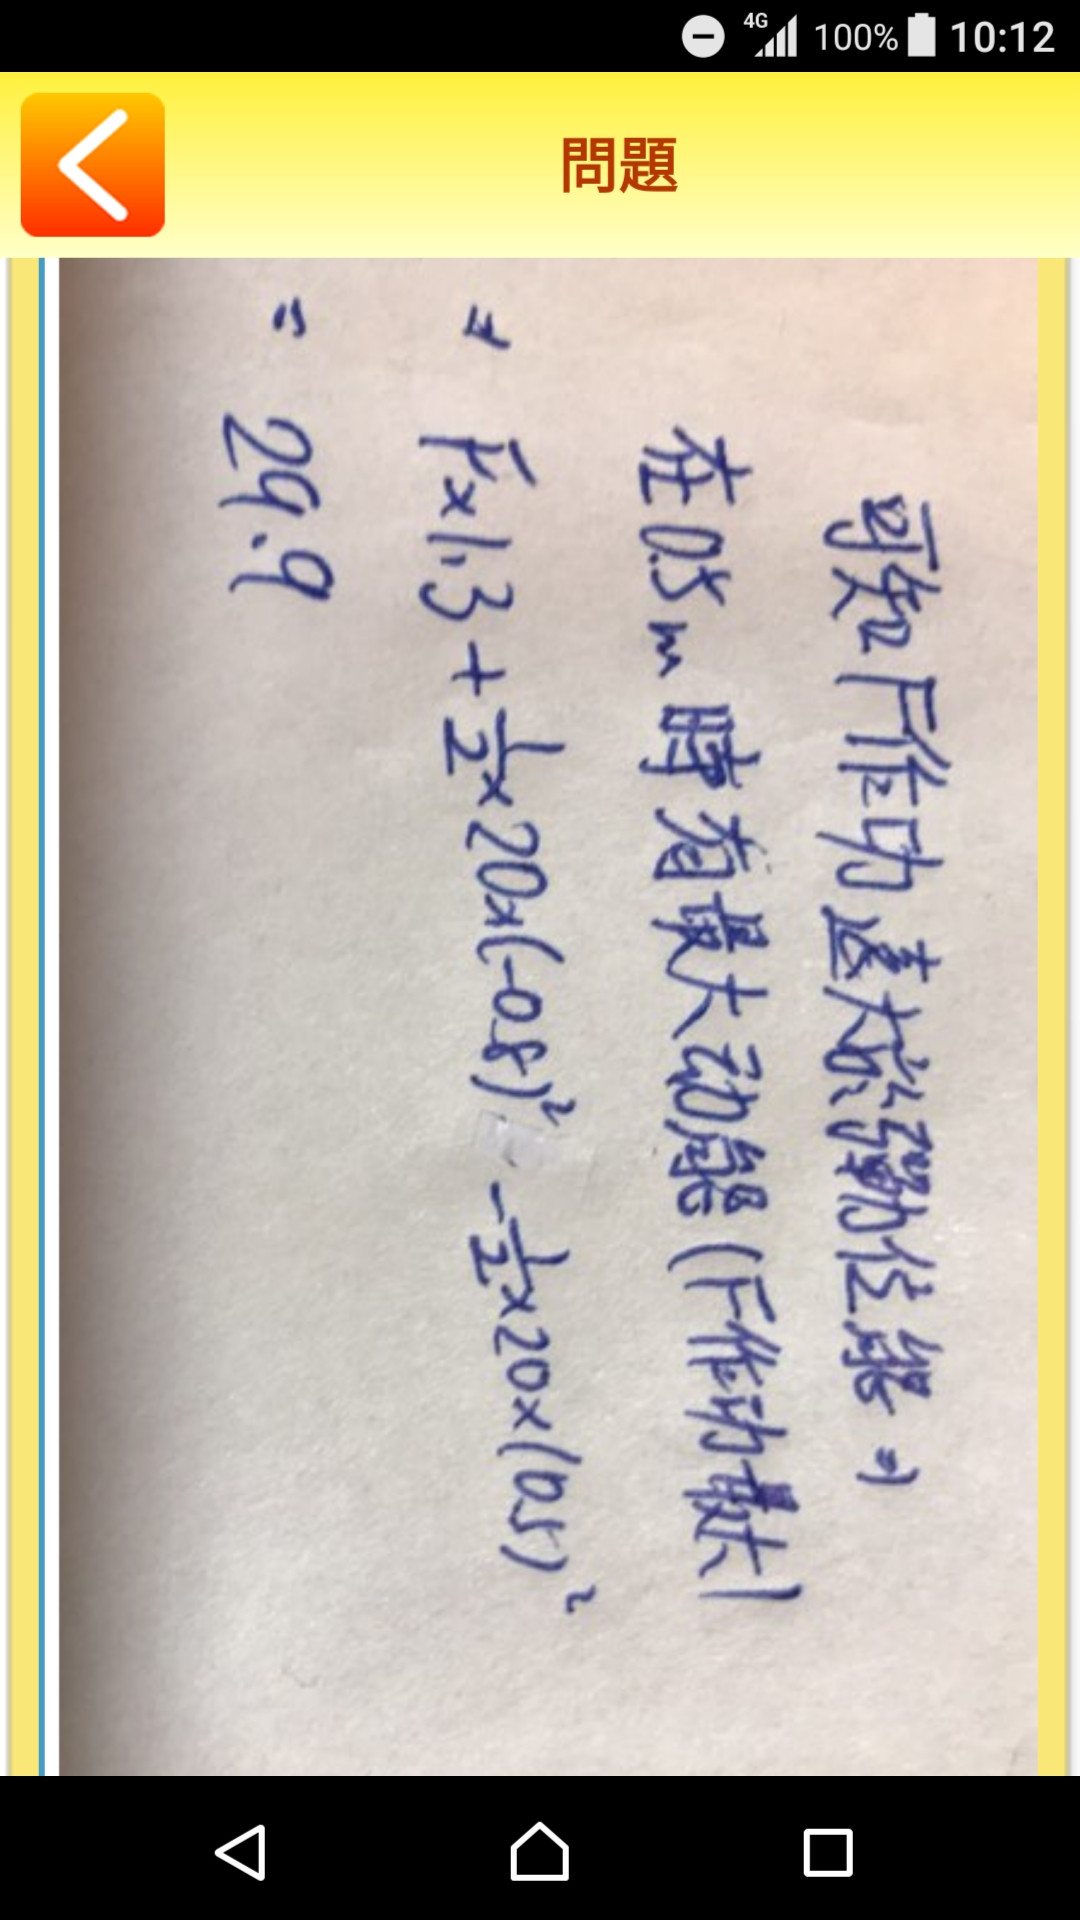 4G 100% 10:12
問題
可知F作功遠大於彈力位能⇒
在0.5m時有最大动能(F作功最大)
⇒ F×1.3+½×20×(-0.8)² -½×20×(0.5)²
= 29.9